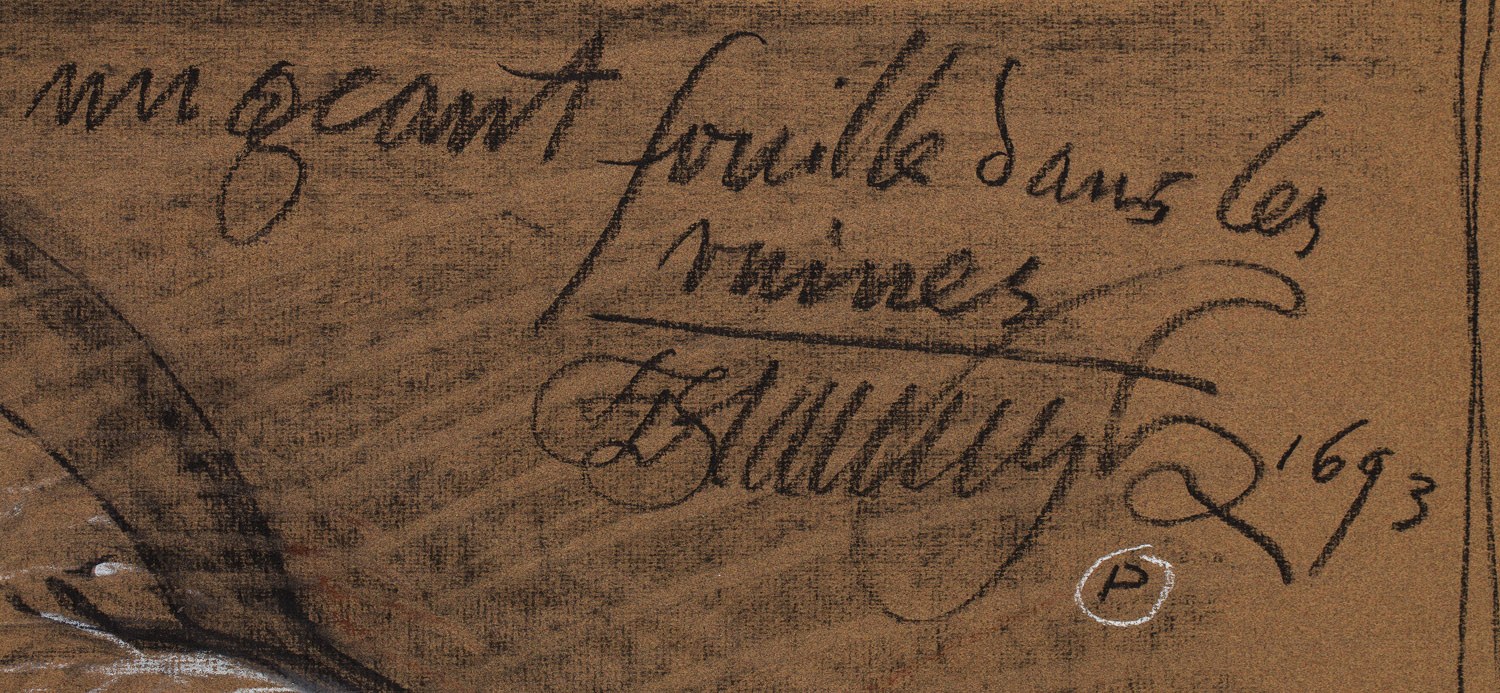 un geant fouille dans les
ruines
1693
P